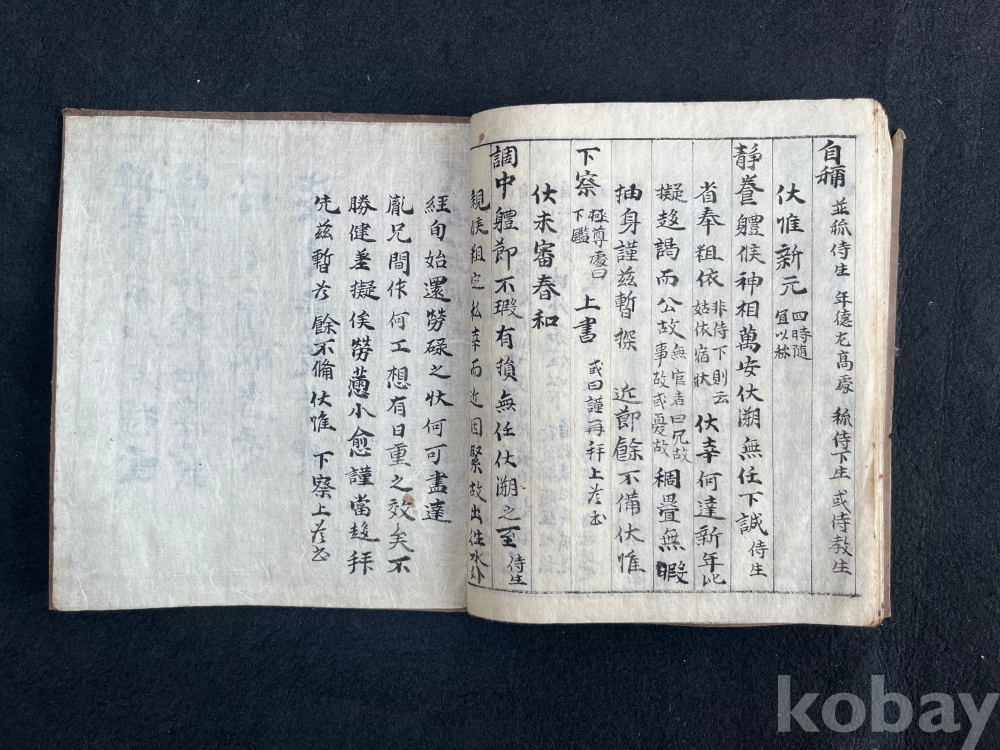 自稱 並稱侍生 年德尤高處 稱侍下生 或侍教生
伏惟新元 四時隨宜以稱
靜養軆候神相萬安伏溯無任下誠 侍生
省奉粗依 非侍下則云姑依宿狀 伏幸何達新年此
擬趍謁而公故 無官者曰冗故事故或憂故 稠疊無暇
抽身謹茲暫探 近節餘不備伏惟
下察 極尊處曰下鑑 上書 或曰謹再拜上候書
伏未審春和
調中軆節不瑕有損無任伏溯之至 侍生
親候粗安私幸而近因緊故出往水外
經旬始還勞碌之狀何可盡達
胤兄間作何工想有日重之效矣不
勝健羨擬俟勞憊小愈謹當趍拜
先茲暫候 餘不備伏惟 下察上候書
kobay